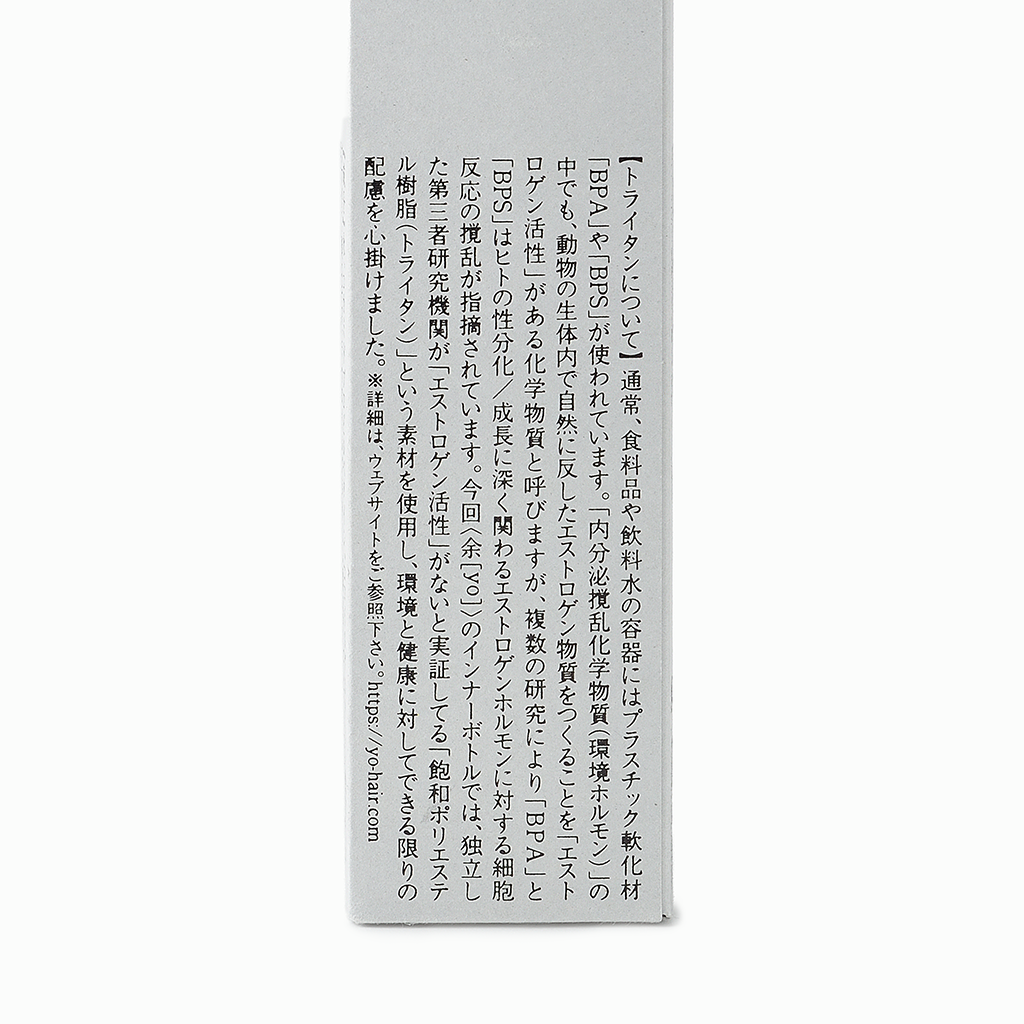 【トライタンについて】通常、食料品や飲料水の容器にはプラスチック軟化材
「BPA」や「BPS」が使われています。「内分泌撹乱化学物質（環境ホルモン）」の
中でも、動物の生体内で自然に反したエストロゲン物質をつくることを「エスト
ロゲン活性」がある化学物質と呼びますが、複数の研究により「BPA」と
「BPS」はヒトの性分化／成長に深く関わるエストロゲンホルモンに対する細胞
反応の撹乱が指摘されています。今回〈余[yo]〉のインナーボトルでは、独立し
た第三者研究機関が「エストロゲン活性」がないと実証してる「飽和ポリエステ
ル樹脂（トライタン）」という素材を使用し、環境と健康に対してできる限りの
配慮を心掛けました。※詳細は、ウェブサイトをご参照下さい。https://yo-hair.com